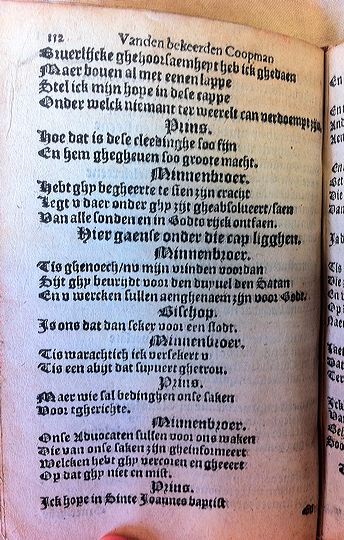 112 Vanden bekeerden Coopman
Buerlijcke ghehoorsaemheyt heb ick ghedaen
Maer bouen al met eenen lappe
Stel ick mijn hope in dese cappe
Onder welck niemant ter weerelt can verdoempt zijn
Prins.
Hoe dat is dese cleedinghe soo fijn
En hem ghegheuen soo groote macht.
Minnenbroer.
Hebt ghy begheerte te sien zijn cracht
Legt v daer onder ghy zijt gheabsolueert/saen
Van alle sonden en in Godts rijck ontfaen.
Hier gaense onder die cap ligghen.
Minnenbroer.
Tis ghenoech/nv mijn vrinden voordan
Sijt ghy beurijdt voor den duyuel den Satan
En v wercken sullen aenghenaem zijn voor Godt.
Bisschop.
Is ons dat dan seker voor een slodt.
Minnenbroer.
Tis warachtich ick versekert v
Tis een abijt dat supuert ghetrou.
Prins.
Maer wie sal bedinghen onse saken
Voor tgherichte.
Minnenbroer.
Onse Aduocaten sullen voor ons waken
Die van onse saken zijn gheinformeert
Welcken hebt ghy vercoren en gheeert
Op dat ghy niet en mist.
Prins.
Ick hope in Sinte Joannes baptist